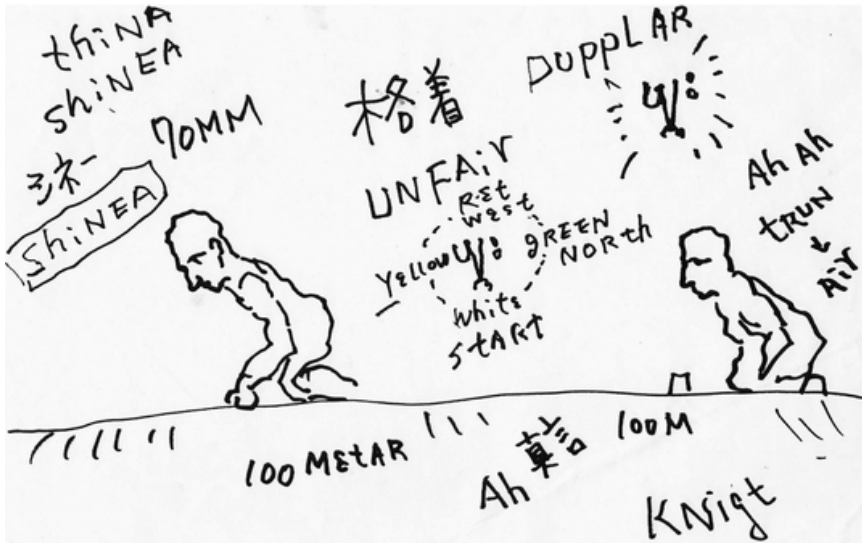 thiNA
ShiNEA
シネー
ShiNEA
70MM
格着
UNFAir
REt
WESt
YEllow
gREEN
NORth
White
StARt
DUPPLAR
Ah Ah
tRUN
Air
100 MEtAR
Ah
100M
KNigt